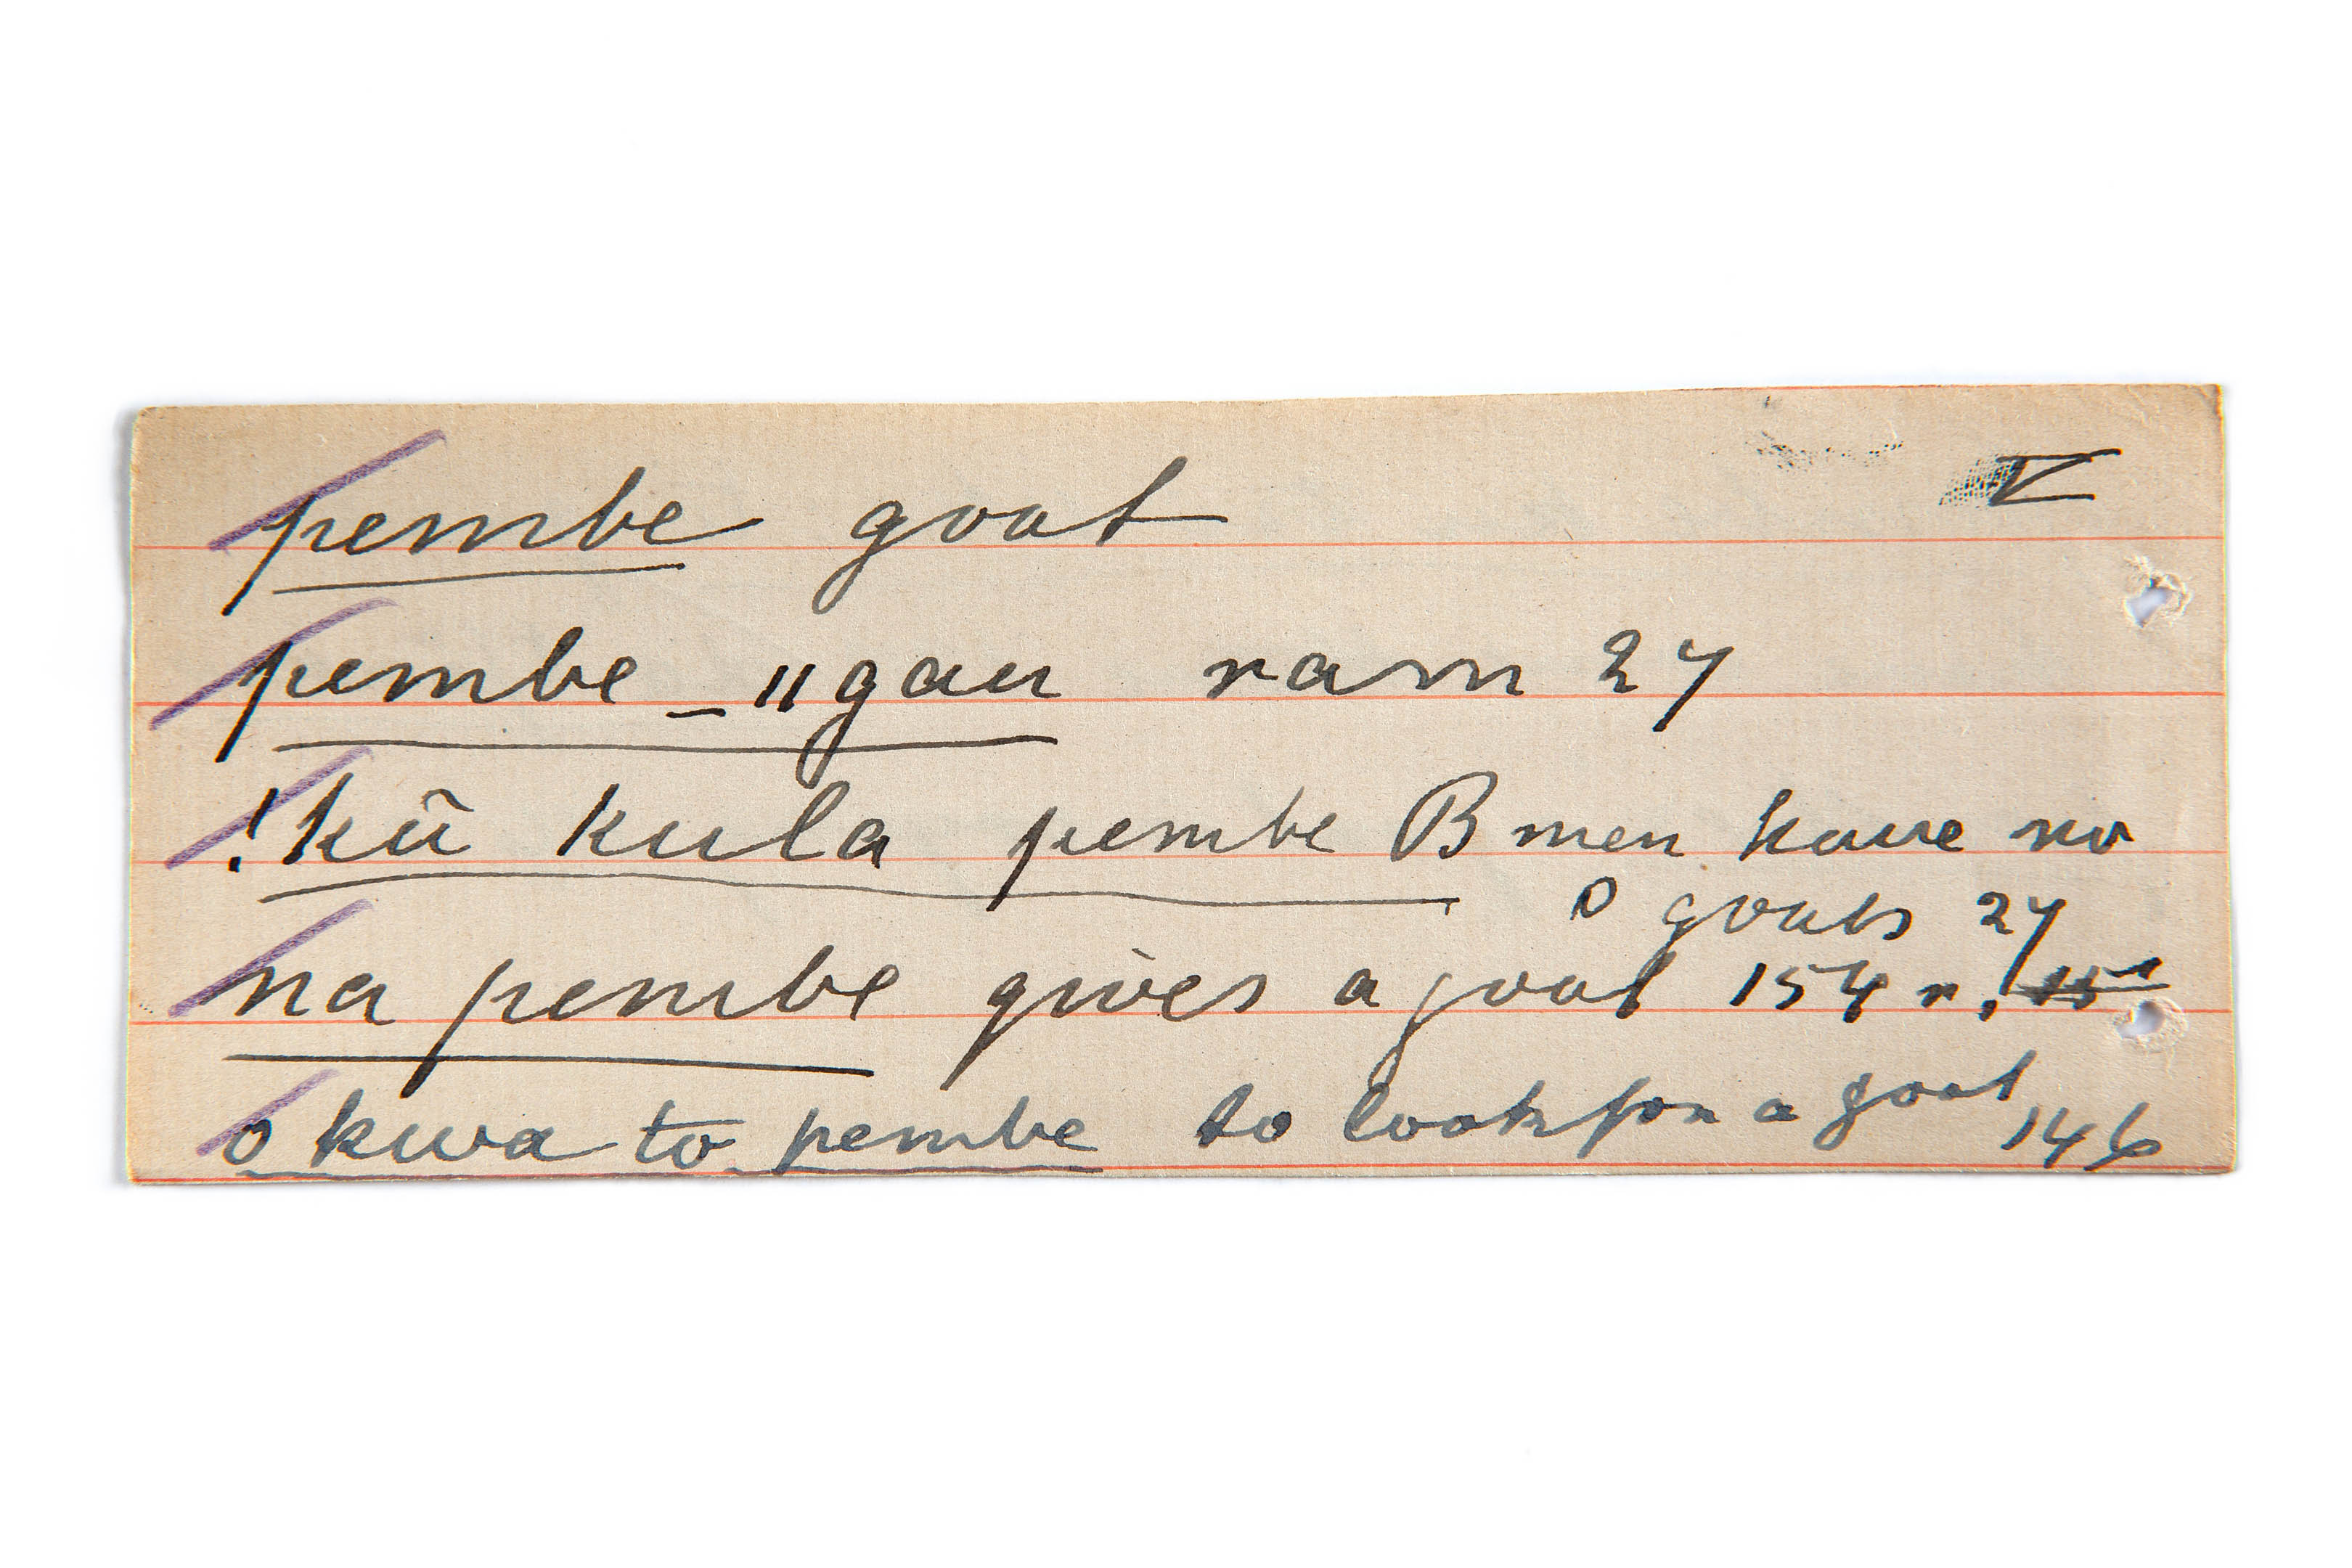 pembe goat V
pembe _ ǁgau ram 27
!kũ kula pembe B men have no
goats 27
na pembe gives a goat 154 r.
o kwa to pembe to look for a goat
146